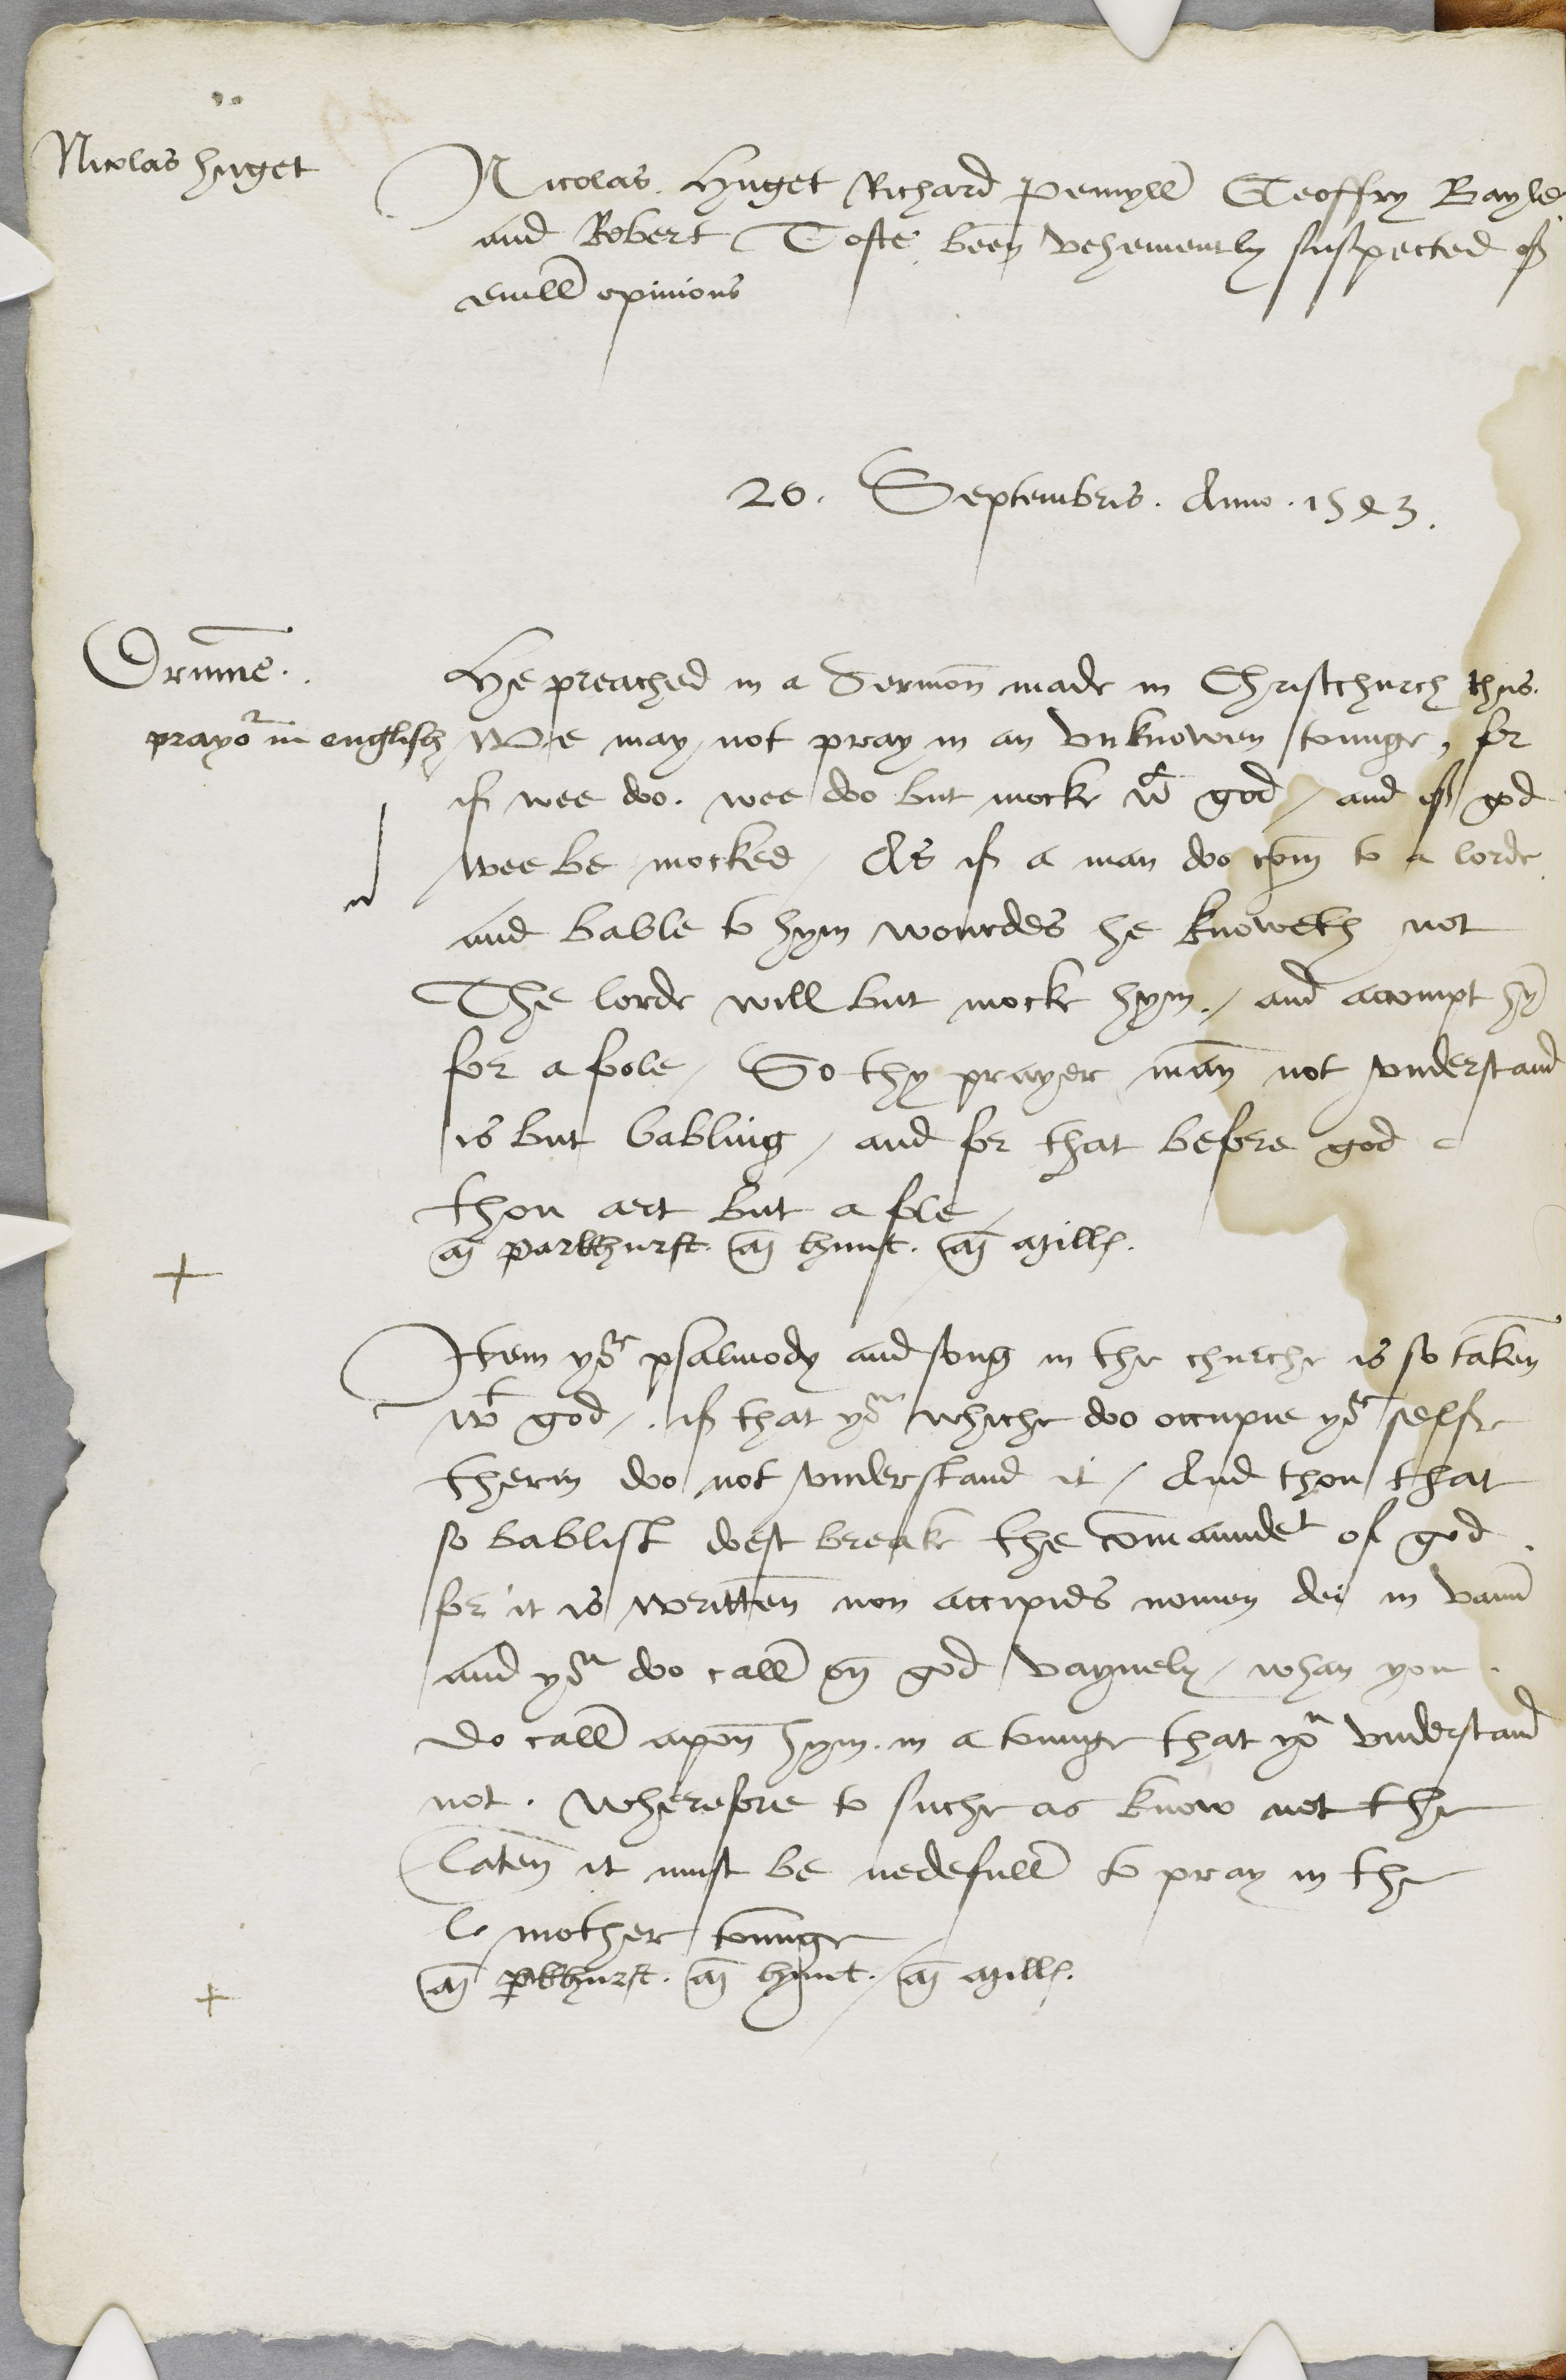 Nicolas huget
Nicolas. Huget Richard Pemyll Geoffry Bayle
and Robert Tofte been vehemently suspected of
euell opinions
20. Septembris. Anno. 1543.
Drumme.
prayor in englisch
He preached in a Sermon made in Christchurch thus.
We may not pray in an vnknowen tounge, for
if wee doo. wee doo but mocke wt god / and of god
wee be mocked / As if a man doo com to a lorde
and bable to hym wourdes he knoweth not
The lorde will but mocke hym. / and accompt hym
for a foole / So thy prayer man not vnderstand
is but babling / and for that before god
thou art but a fole /
m parkhurst. m hunt. m mills.
Item yor psalmody and song in the churche is so taken
wt god /. if that you whiche doo occupie yor selfe
therin doo not vnderstand it / And thou that
so bablist doest breake the comaundet of god.
for it is written non accipies nomen dei in vanum
and you doo call on god vaynely / whan you
do call apon hym. in a tounge that you vnderstand
not. wherefore to suche as know not the
laten it must be nedefull to pray in the
mother tounge
m pkhurst. m hunt. / m mills.